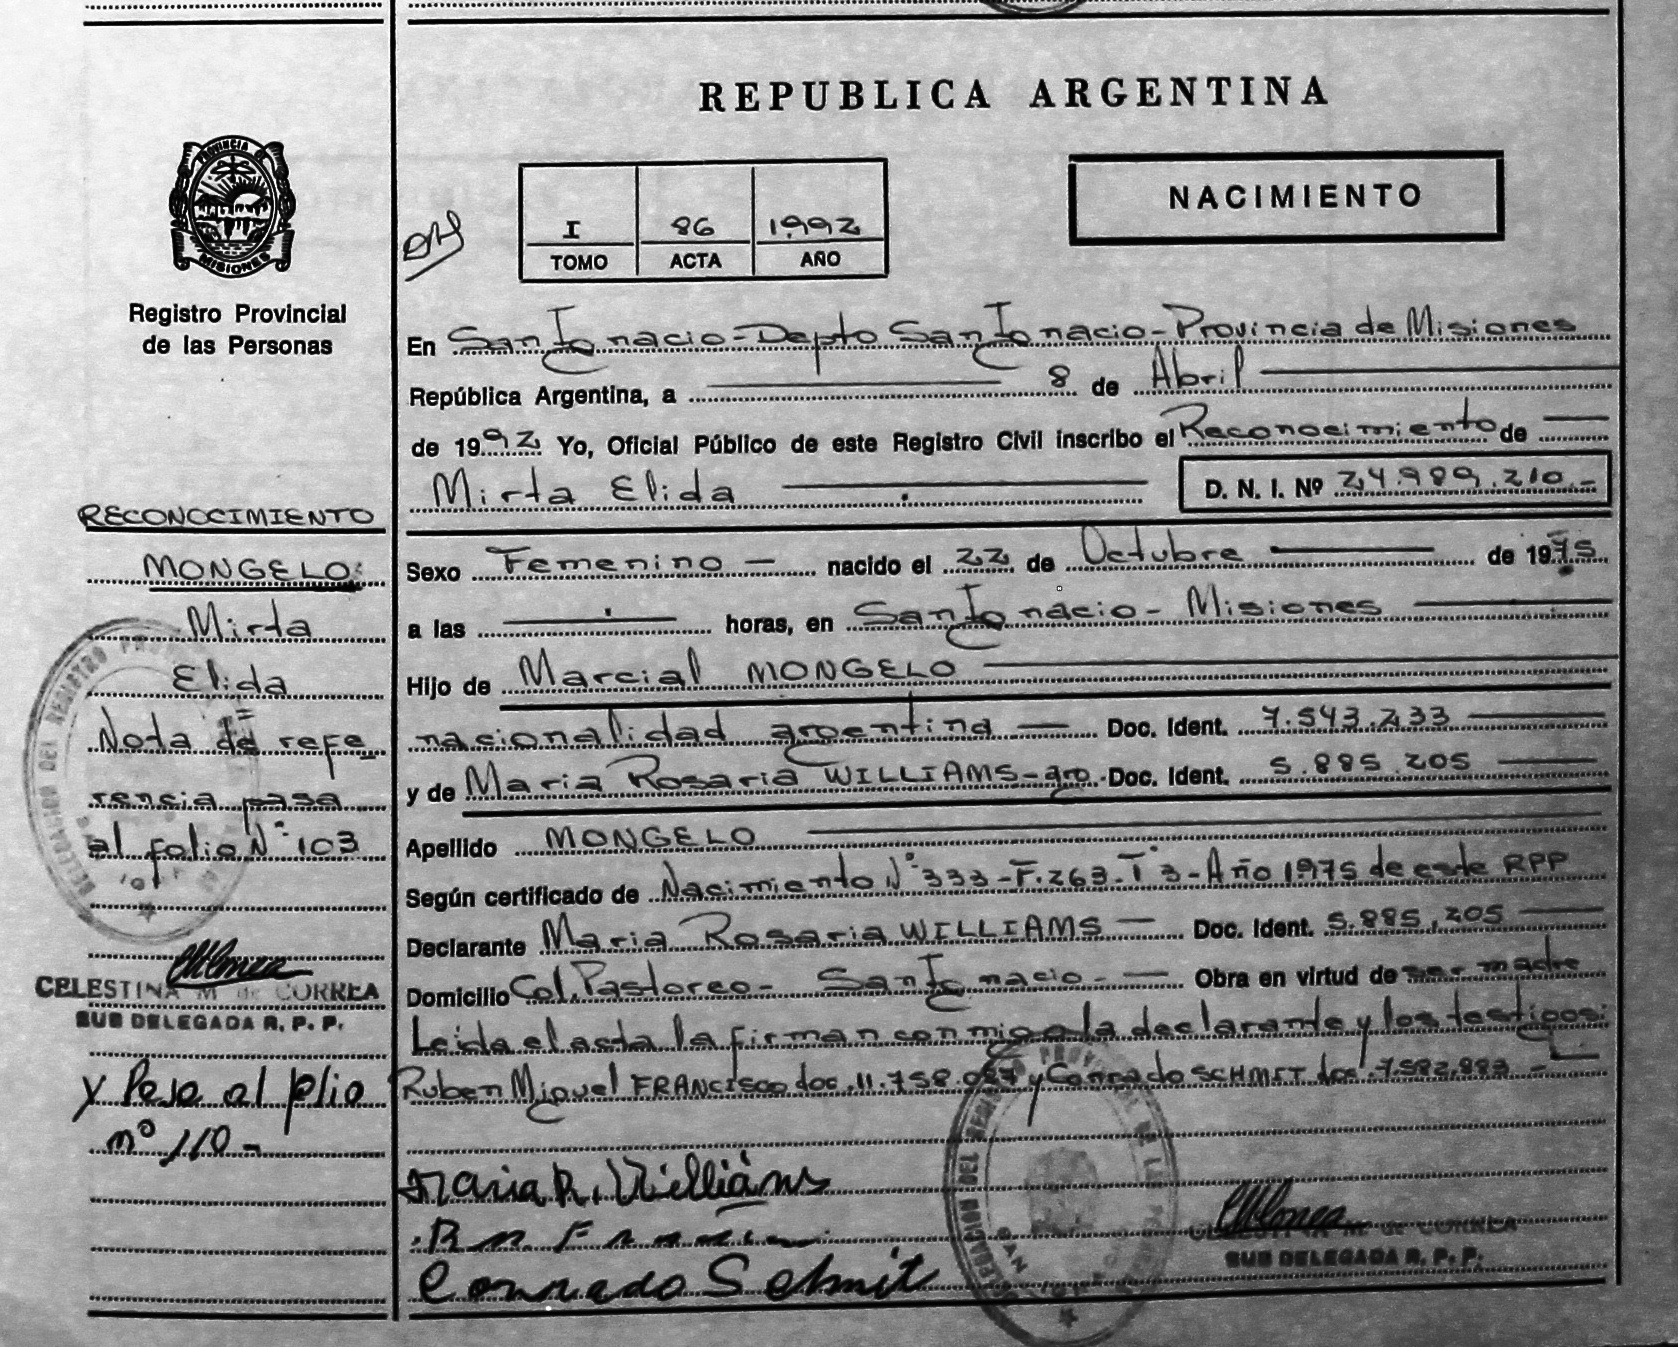 REPUBLICA ARGENTINA
PROVINCIA DE
MISIONES
Registro Provincial
de las Personas
I 86 1992
TOMO ACTA AÑO
NACIMIENTO
En San Ignacio-Depto San Ignacio-Provincia de Misiones
República Argentina, a 8 de Abril
de 1992 Yo, Oficial Público de este Registro Civil inscribo el Reconocimiento de
Mirta Elida D. N. I. Nº 24.989.210.-
Sexo Femenino - nacido el 22 de Octubre de 1975
a las horas, en San Ignacio - Misiones
Hijo de Marcial MONGELO
nacionalidad argentina - Doc. Ident. 7.543.233
y de Maria Rosaria WILLIAMS-arg.-Doc. Ident. 5.885.205
Apellido MONGELO
Según certificado de Nacimiento N° 333-F.263-T°3-Año 1975 de este RPP
Declarante Maria Rosaria WILLIAMS - Doc. Ident. 5.885.205
Domicilio Col. Pastoreo - San Ignacio - Obra en virtud de ser madre
Leida el acta la firman conmigo la declarante y los testigos:
Ruben Miguel FRANCISCO doc. 11.758.087 y Conrado SCHMIT doc. 7.582.883 -
Maria R. Williáms
Conrado Schmit
CORREA
SUB DELEGADA R. P. P.
RECONOCIMIENTO
MONGELO:
Mirta
Elida
Nota de refe
rencia pasa
al folio N° 103
CELESTINA M. de CORREA
SUB DELEGADA R. P. P.
y Pasa al folio
nº 110-